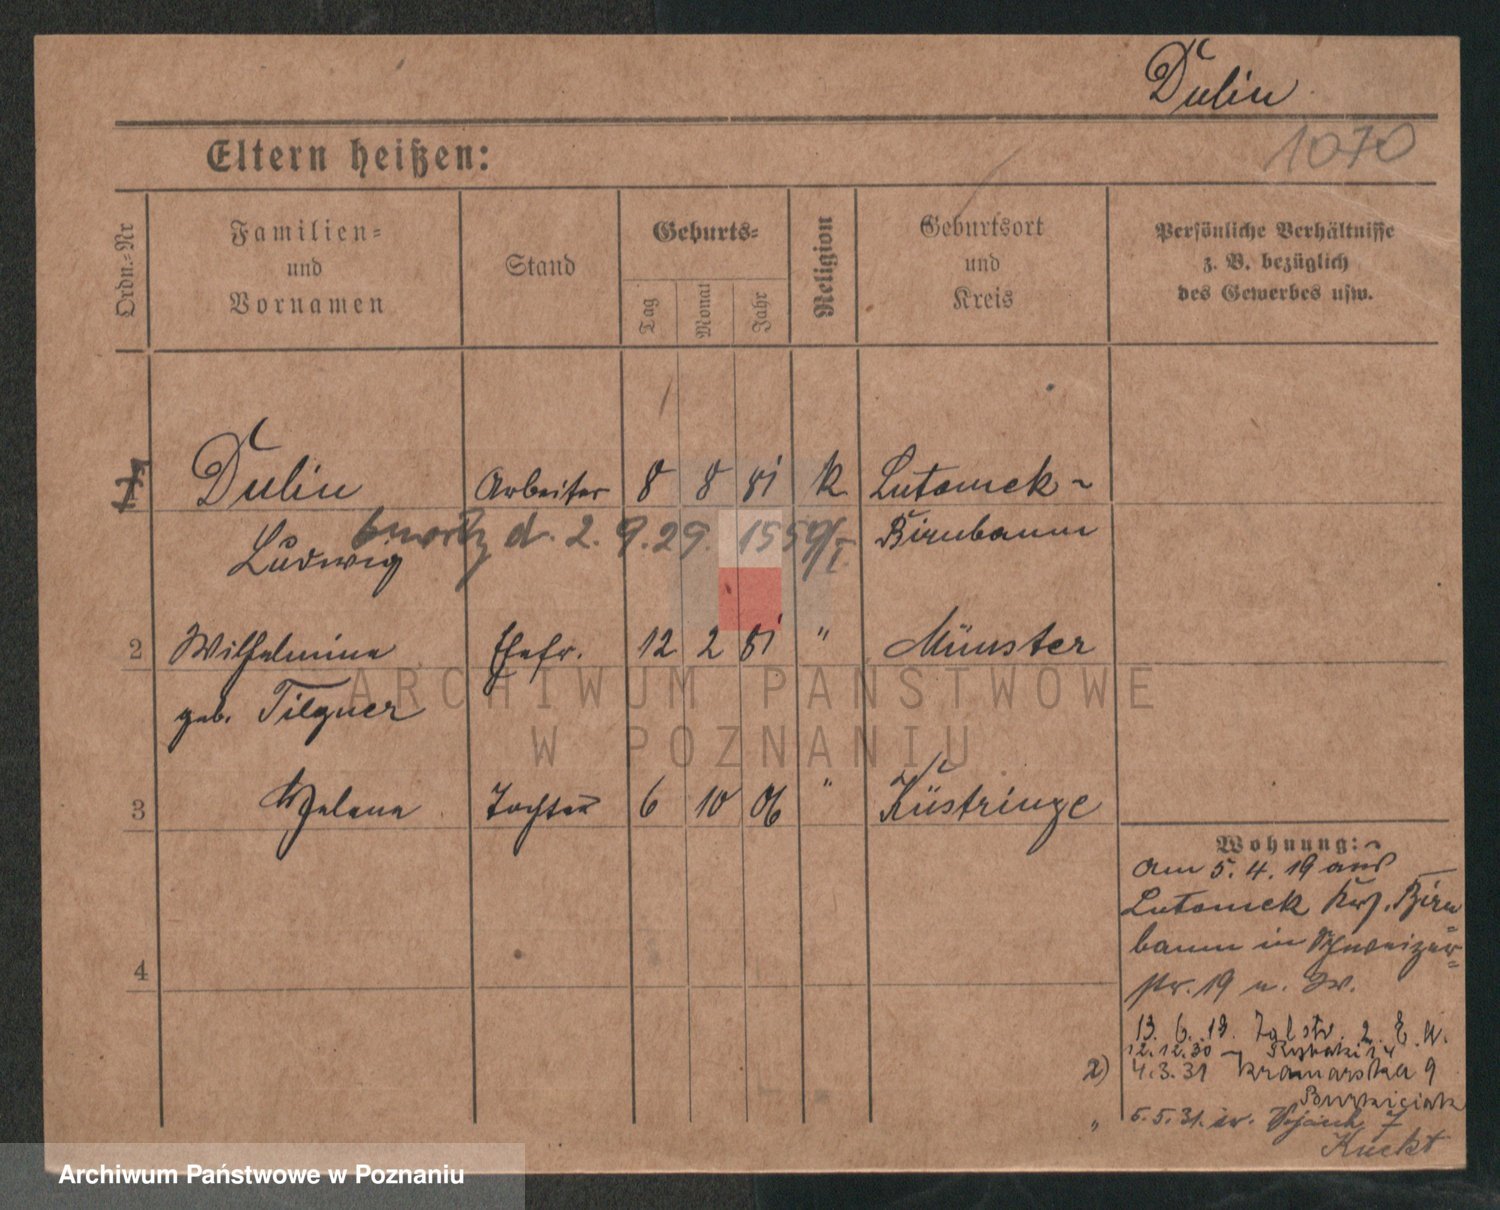 Dulin
1070
Eltern heißen:
Ordn.-Nr
Familien-
und
Vornamen
Stand
Geburts-
Tag
Monat
Jahr
Religion
Geburtsort
und
Kreis
Persönliche Verhältnisse
z. B. bezüglich
des Gewerbes usw.
1 Dulin Arbeiter 8 8 81 k Lutomek-
d. 2. 9. 29.
Ludwig Birnbaum
2 Wilhelmine Ehefr. 12 2 81 " Münster
geb. Tilgner
3 Helene Tochter 6 10 06 " Küstringe
4
Wohnung:
Am 5. 4. 19 aus
Lutomek Krs. Birn
baum in Schweizer=
str. 19 u. Zw.
13. 6. 19. 2. E. W.
12.12.30 - Rybaki 14
2) 4.3.31 Kramarska 9
" 5.5.31. 7
ARCHIWUM PAŃSTWOWE
W POZNANIU
Archiwum Państwowe w Poznaniu